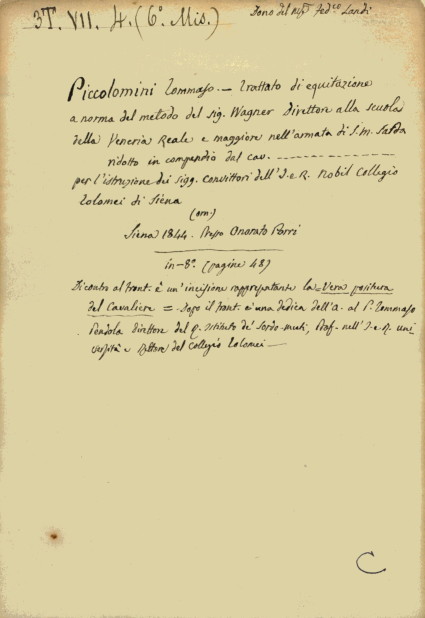 3T. VII. 4. (6º. Mis.)
Dono del Sigr Fedco Landi
Piccolomini Tommaso. — Trattato di equitazione
a norma del metodo del Sig. Wagner Direttore alla scuola
della Veneria Reale e maggiore nell'armata di S. M. Sarda
ridotto in compendio dal cav. ————
per l'istruzione dei Sigg. Convittori dell'I. e R. Nobil Collegio
Tolomei di Siena
(orn.)
Siena 1844. Presso Onorato Porri
in-8º. (pagine 48)
Dicontro al front. è un'incisione rappresentante la = Vera positura
del Cavaliere = Dopo il front. è una dedica dell'A. al P. Tommaso
Pendola Direttore del R. Istituto de' Sordo-muti, Prof. nell'I. e R. Uni
versità e Rettore del Collegio Tolomei —
C